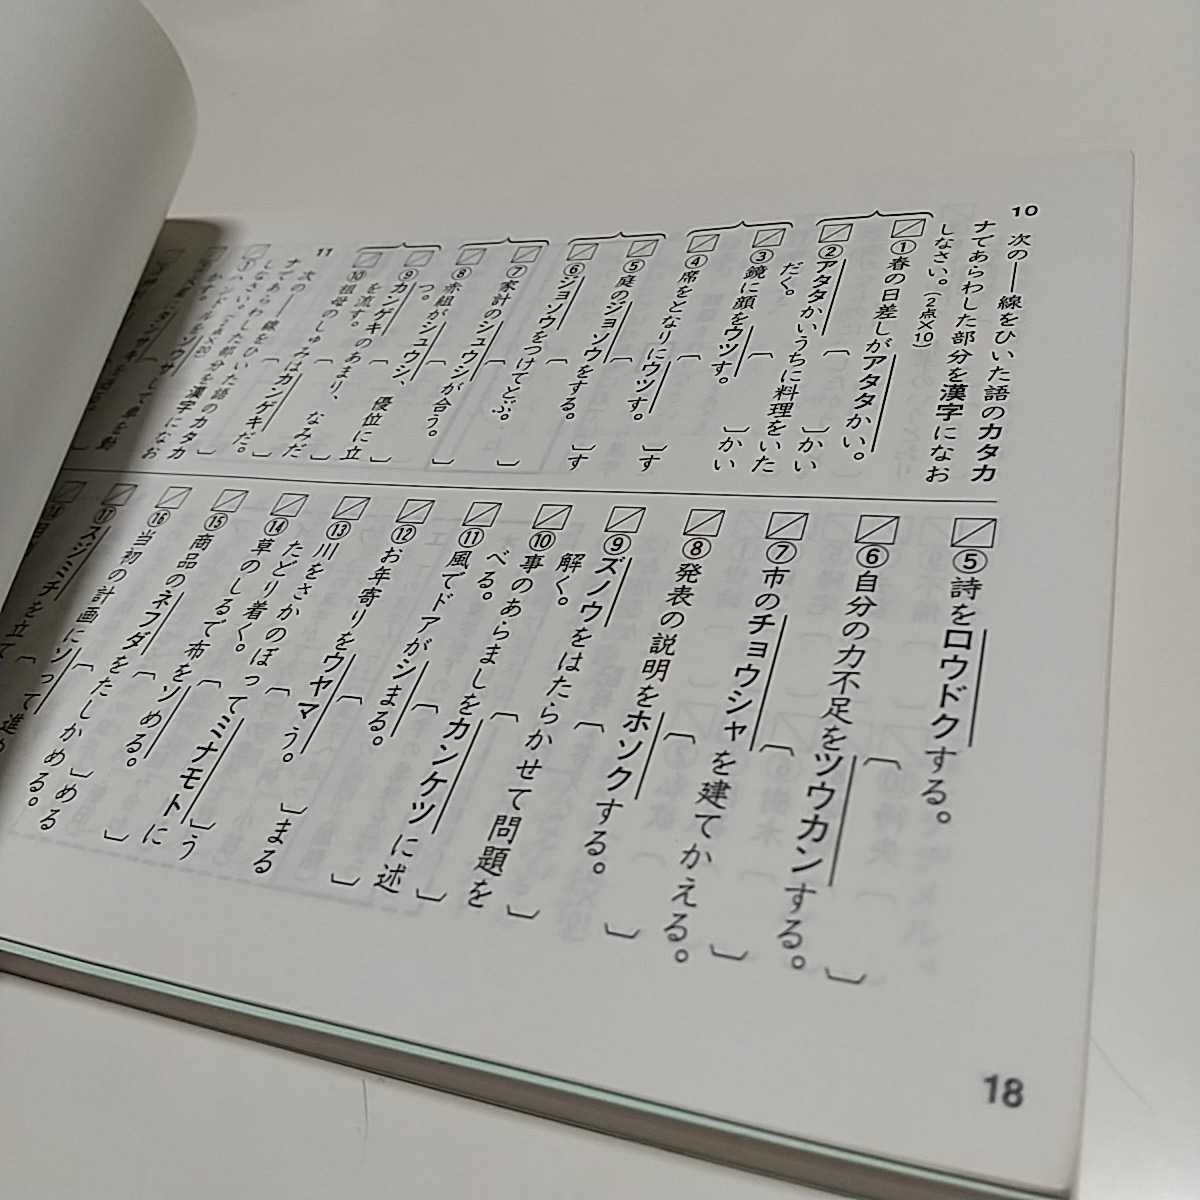 10 次の——線をひいた語のカタカ
ナであらわした部分を漢字になお
しなさい。(2点×10)
①春の日差しがアタタかい。
〔 〕かい
②アタタかいうちに料理をいた
だく。 〔 〕かい
③鏡に顔をウツす。
〔 〕す
④席をとなりにウツす。
〔 〕す
⑤庭のジョソウをする。
〔 〕
⑥ジョソウをつけてとぶ。
〔 〕
⑦家計のシュウシが合う。
〔 〕
⑧赤組がシュウシ、優位に立
つ。 〔 〕
⑨カンゲキのあまり、なみだ
を流す。 〔 〕
⑩祖母のしゅみはカンゲキだ。
〔 〕
11 次の——線をひいた語のカタカ
ナであらわした部分を漢字になお
しなさい。
①ハンドルをソウサして車を動
かす。
⑤詩をロウドクする。
〔 〕
⑥自分の力不足をツウカンする。
〔 〕
⑦市のチョウシャを建てかえる。
〔 〕
⑧発表の説明をホソクする。
〔 〕
⑨ズノウをはたらかせて問題を
解く。 〔 〕
⑩事のあらましをカンケツに述
べる。 〔 〕
⑪風でドアがシまる。
〔 〕まる
⑫お年寄りをウヤマう。
〔 〕う
⑬川をさかのぼってミナモトに
たどり着く。 〔 〕
⑭草のしるで布をソめる。
〔 〕める
⑮商品のネフダをたしかめる。
〔 〕
⑯当初の計画にソって進め
⑰スジミチを立て
18